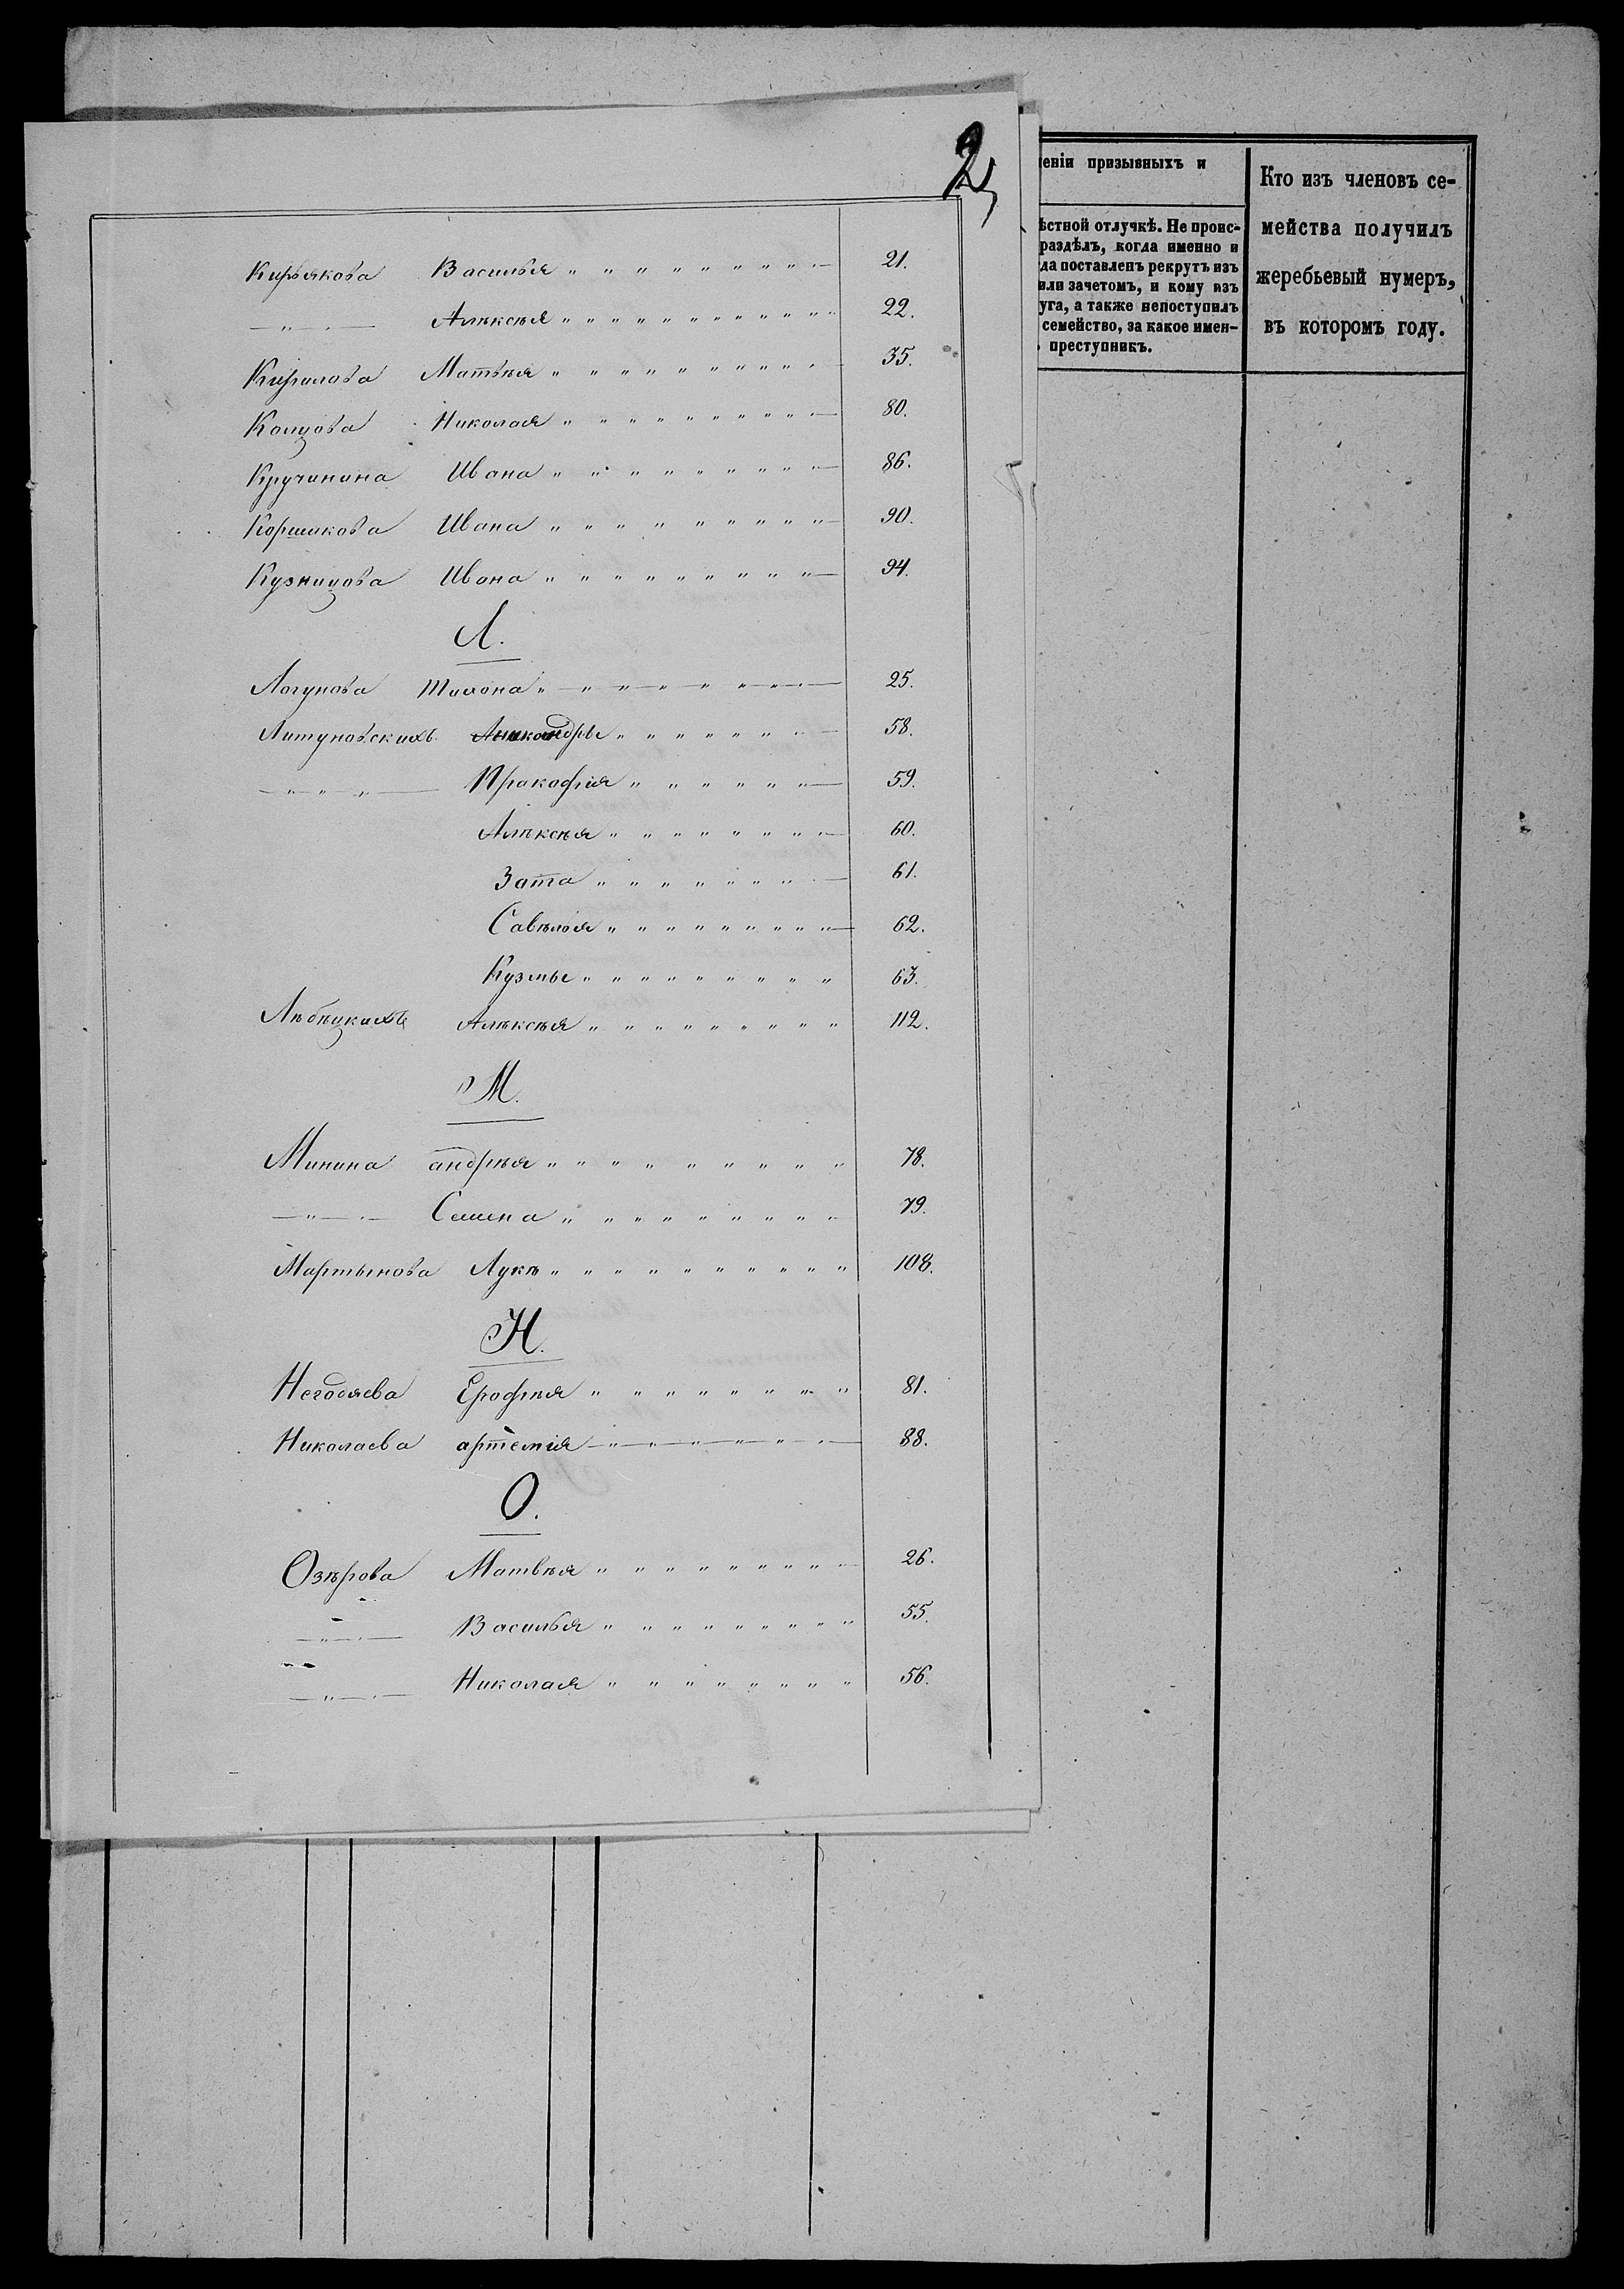 2
Кирьякова Василья " " " " " " " " — 21.
— " — Алѣксѣя " " " " " " " " " " 22.
Кирилова Матвѣя " " " " " " " " " 35.
Колцова Николая " " " " " " " " — 80.
Кручинина Ивана " " " " " " " " — 86.
Коршикова Ивана " " " " " " " " — 90.
Кузницова Ивана " " " " " " " " — 94.
Л.
Логунова Тихона " — " — " — " " " — 25.
Литуновскихъ Никандры " " " " " " " — 58.
— " " " — Прокофія " " " " " " — 59.
Алѣксѣя " " " " " " " " — 60.
Зота " " " " " " " — 61.
Савѣлья " " " " " " " " — 62.
Кузмы " " " " " " " " " 63.
Лѣбѣцкихъ Алѣксѣя " " " " " " " " " 112.
М.
Минина андрѣя " " " " " " " " " 78.
— " — Семена " " " " " " " " " 79.
Мартынова Лукѣ " " " " " " " " " " 108.
Н.
Негодяева Ерофѣя " " " " " " " " " 81.
Николаева артемія — " — " — " — " — " — 88.
О.
Озѣрова Матвѣя " " " " " " " " " 26.
— " — Василья " " " " " " " " " 55.
— " — Николая " " " " " " " " 56.
еніи призывныхъ и
ѣстной отлучкѣ. Не проис-
раздѣлъ, когда именно и
да поставленъ рекрутъ изъ
или зачетомъ, и кому изъ
уга, а также непоступилъ
семейство, за какое имен-
преступникъ.
Кто изъ членовъ се-
мейства получилъ
жеребьевый нумеръ,
въ которомъ году.